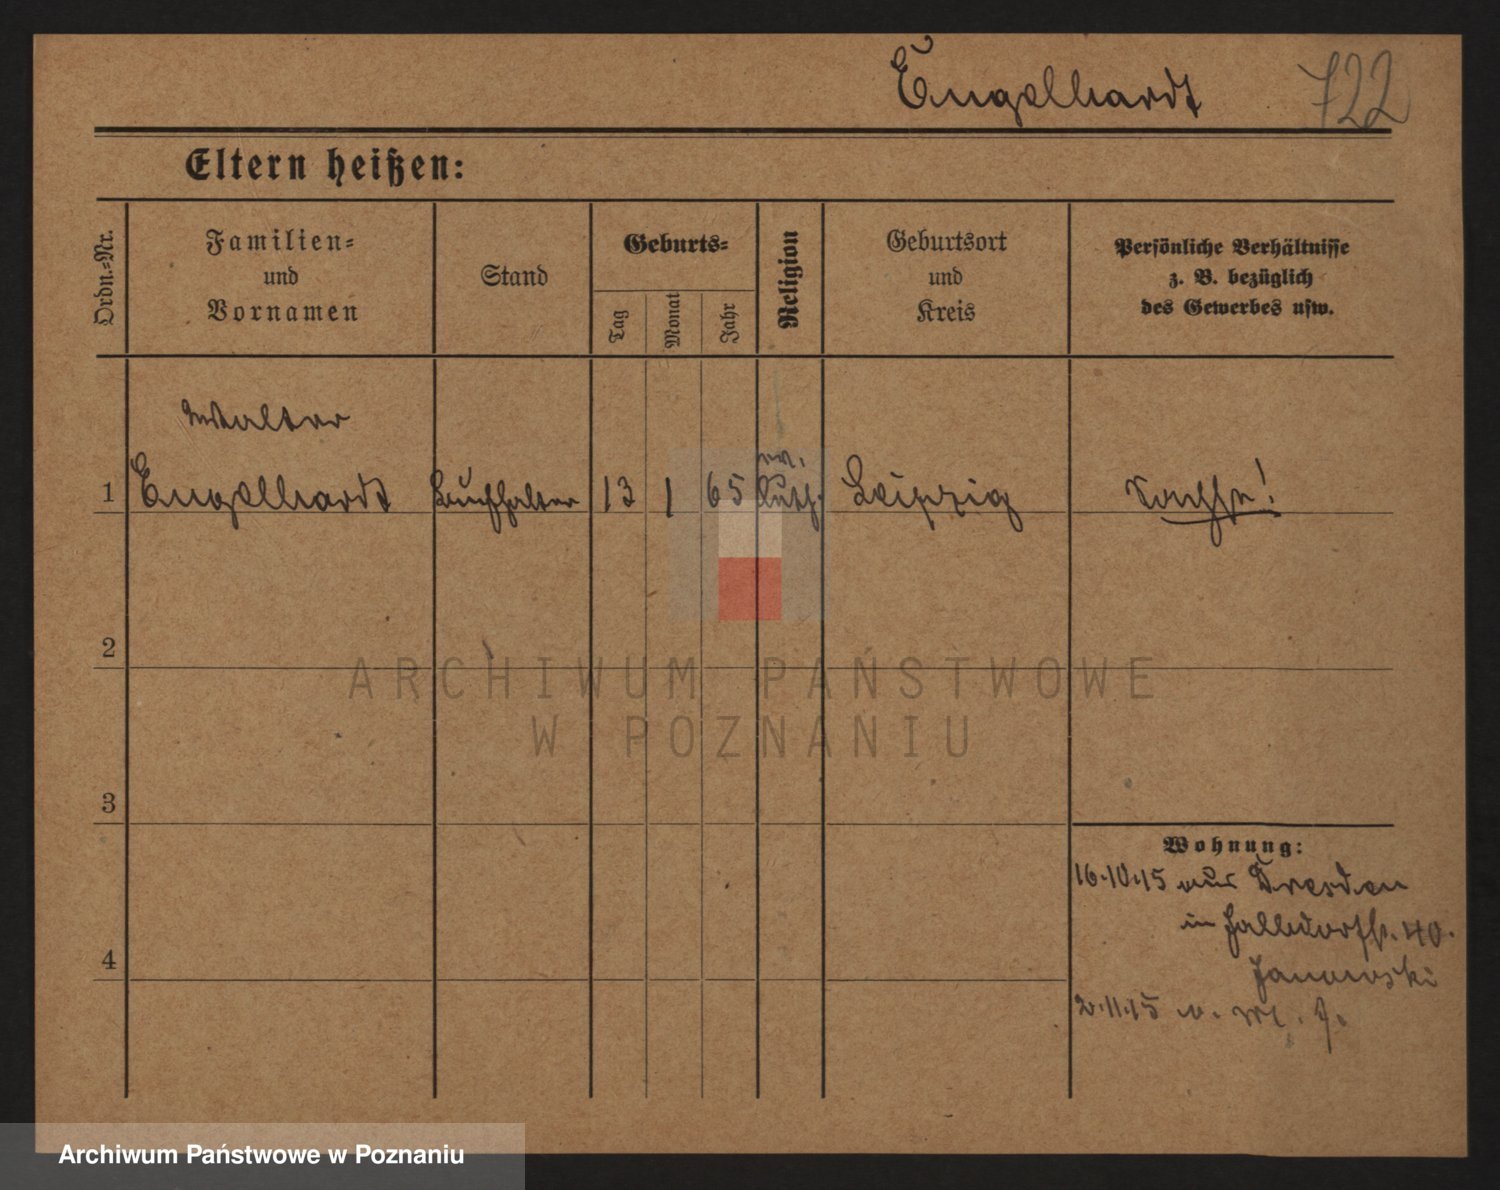 Engelhardt 722
Eltern heißen:
Ordn.-Nr.
Familien-
und
Vornamen
Stand
Geburts-
Tag
Monat
Jahr
Religion
Geburtsort
und
Kreis
Persönliche Verhältnisse
z. B. bezüglich
des Gewerbes usw.
Walter
ev.
1 Engelhardt Buchhalter 13 1 65 Luth. Leipzig Sachse!
2
ARCHIWUM PAŃSTWOWE
W POZNANIU
3
Wohnung:
16.10.15 aus Dresden
in Halldorfstr. 40.
Janowski
4
2.11.15
Archiwum Państwowe w Poznaniu